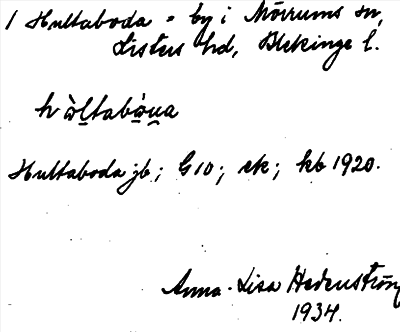 1 Hultaboda = by i Mörrums sn,
Listers hd, Blekinge l.
hòltabòu̯a
Hultaboda jb; G10; ek; kb 1920.
Anna-Lisa Hedenström
1934.